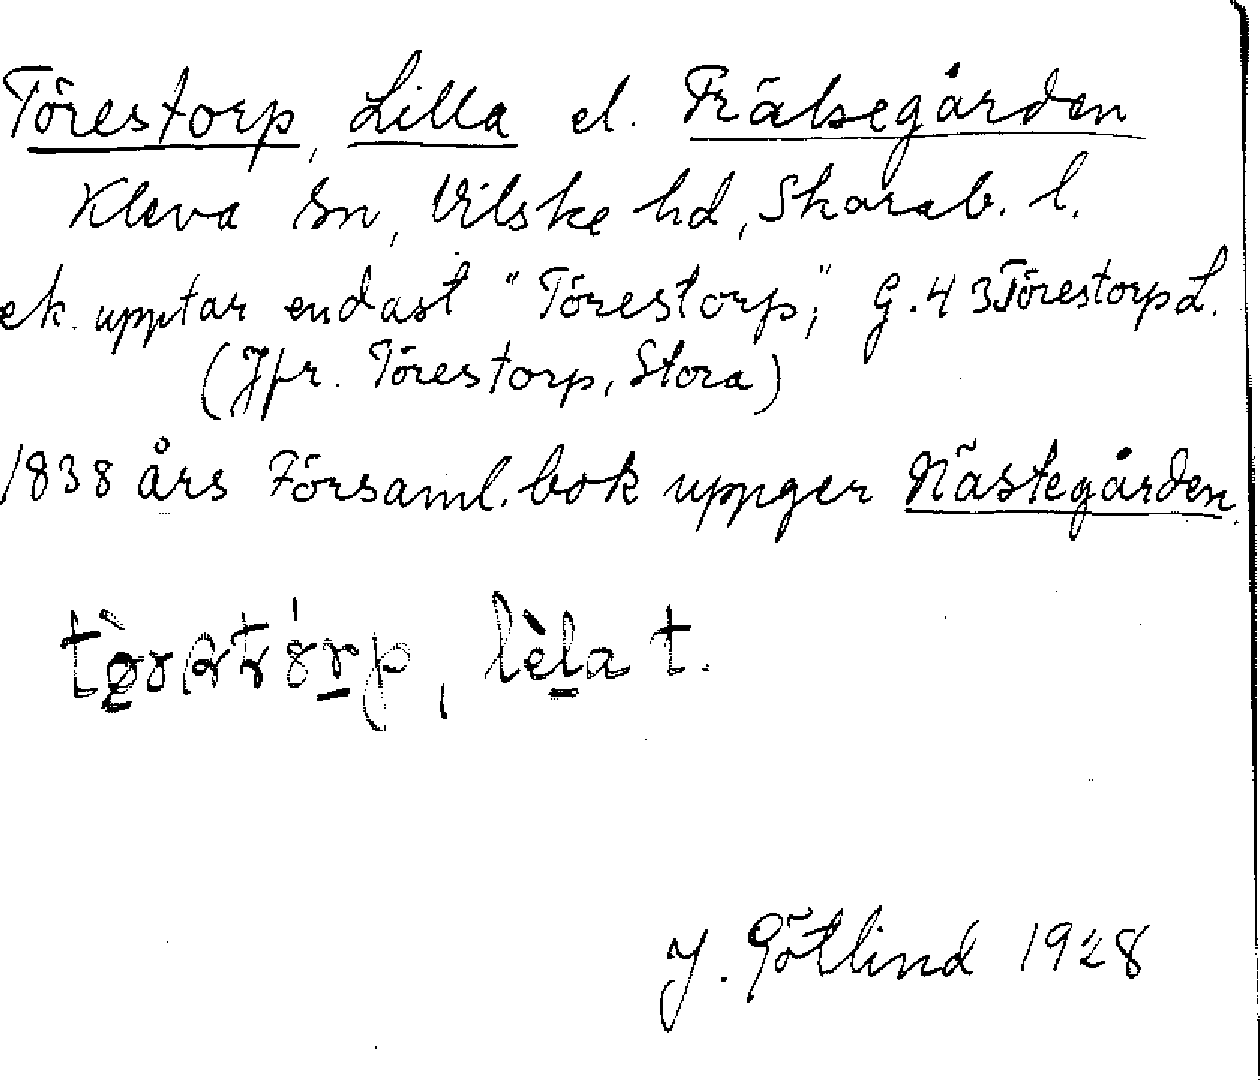 Törestorp, Lilla el. Frälsegården
Kleva sn, Vilske hd, Skarab. l.
ek. upptar endast "Törestorp," G.43 Törestorp L.
(Jfr. Törestorp, Stora)
1838 års Församl.bok uppger Nästegården.
lèla t.
J. Götlind 1928